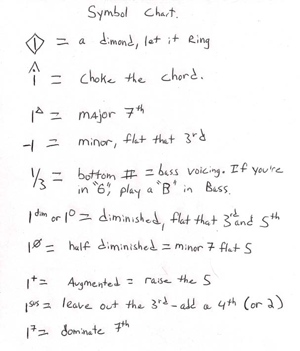 Symbol Chart.
1 = a dimond, let it Ring
^ 1 = choke the chord.
1△ = major 7th
-1 = minor, flat that 3rd
1/3 = bottom # = bass voicing. If you're
in "G", play a "B" in Bass.
1dim or 1o = diminished, flat that 3rd and 5th
1ø = half diminished = minor 7 flat 5
1+ = Augmented = raise the 5
1sus = leave out the 3rd - add a 4th (or 2)
17 = dominate 7th